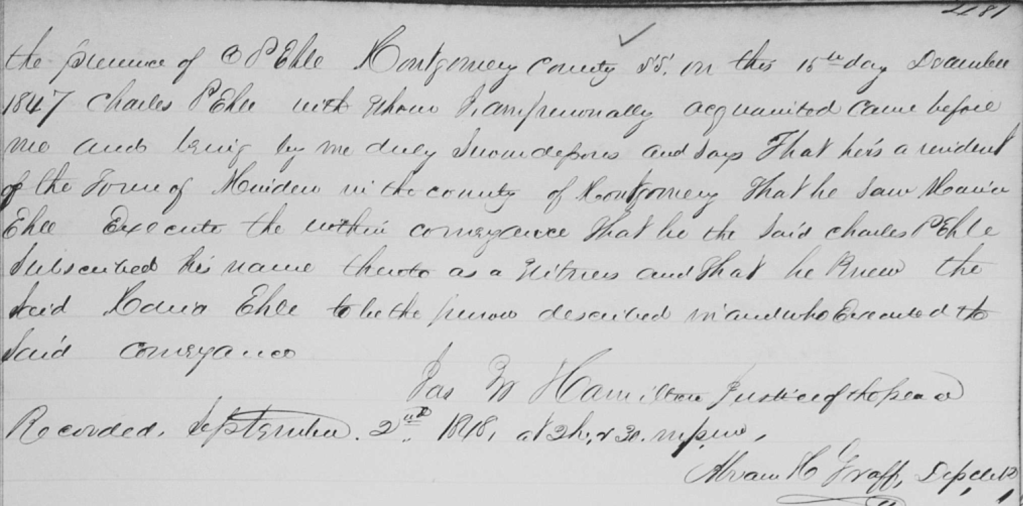 481
the presence of C P Ehle Montgomery County SS. on this 15th day December
1847 Charles P Ehle with whom I am personally acquainted came before
me and being by me duly sworn deposes and says That he is a resident
of the Town of Minden in the county of Montgomery That he saw Maria
Ehle Execute the within conveyance that he the said Charles P Ehle
Subscribed his name thereto as a Witness and that he knew the
said Maria Ehle to be the person described in and who Executed the
said conveyance
Jas W Hamilton Justice of the peace
Recorded, September. 2nd 1848, at 2h, & 30. m, p m,
Abram H Graff, Dep clk